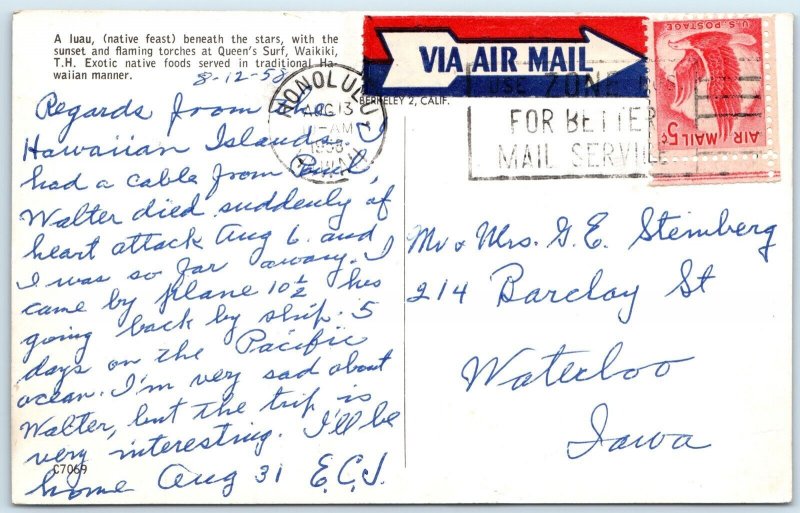 A luau, (native feast) beneath the stars, with the
sunset and flaming torches at Queen's Surf, Waikiki,
T.H. Exotic native foods served in traditional Ha-
waiian manner.
8-12-58
Regards from the
Hawaiian Islands. I
had a cable from Paul,
Walter died suddenly of
heart attack Aug 6. and
I was so far away. I
came by plane 10½ hrs
going back by ship. 5
days on the Pacific
ocean. I'm very sad about
Walter, but the trip is
very interesting. I'll be
home Aug 31 E.C.J.
C7069
HONOLULU
AUG 13
-AM
1958
VIA AIR MAIL
BERKELEY 2, CALIF.
USE ZONE
FOR BETTER
MAIL SERVICE
U.S. POSTAGE
AIR MAIL 5¢
Mr & Mrs. G. E. Steinberg
214 Barclay St
Waterloo
Iowa